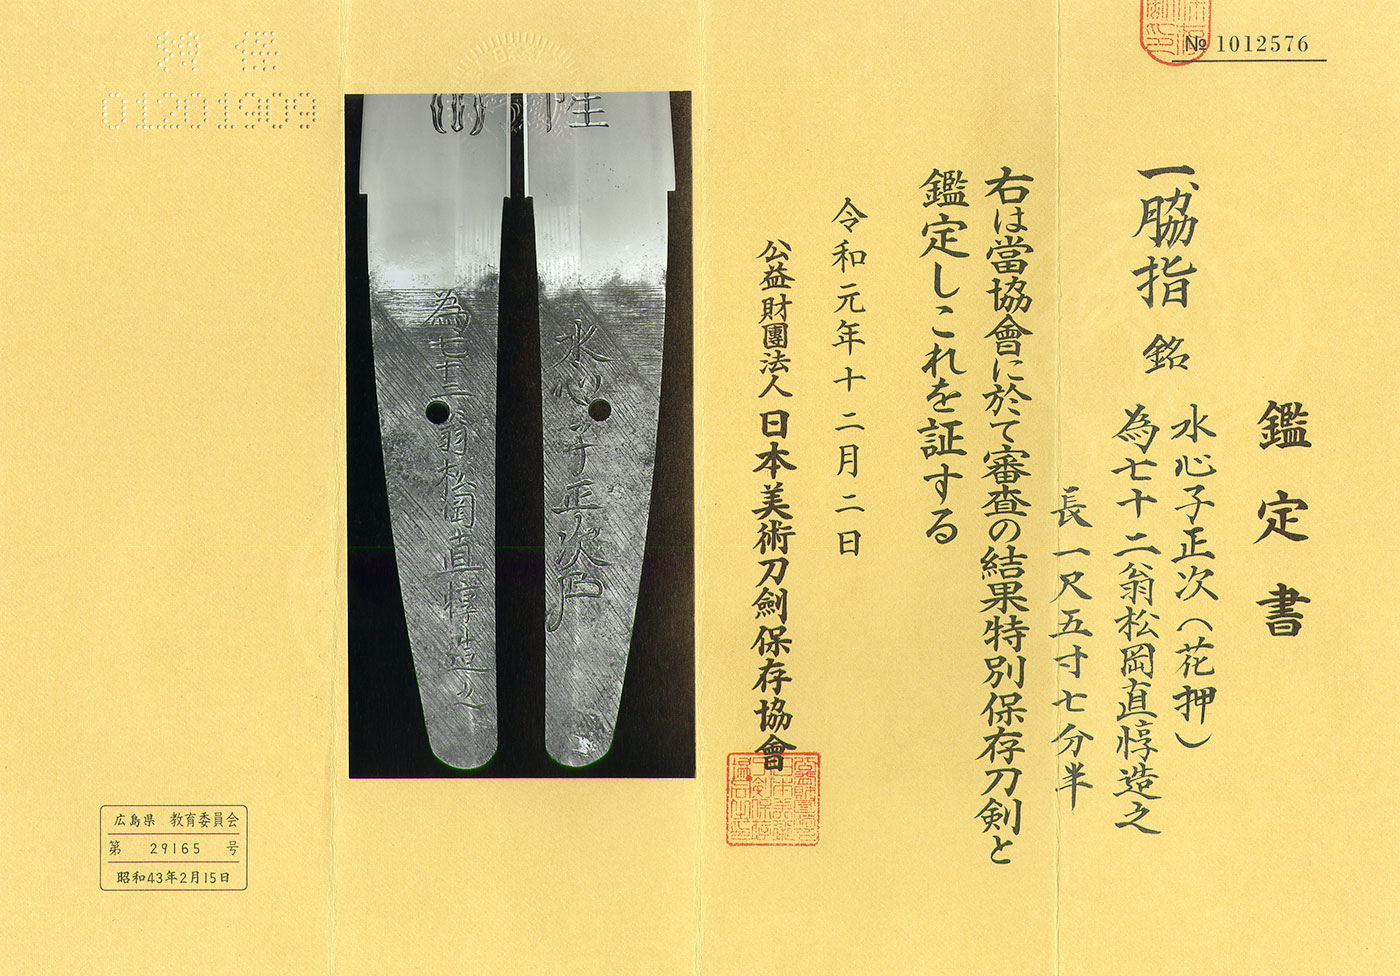 № 1012576
鑑定書
一、脇指 銘 水心子正次（花押）
為七十二翁松岡直惇造之
長一尺五寸七分半
右は當協會に於て審査の結果特別保存刀剣と
鑑定しこれを証する
令和元年十二月二日
公益財團法人 日本美術刀劍保存協會
水心子正次
為七十二翁松岡直惇造之
特保
01201909
広島県 教育委員会
第 29165 号
昭和43年2月15日